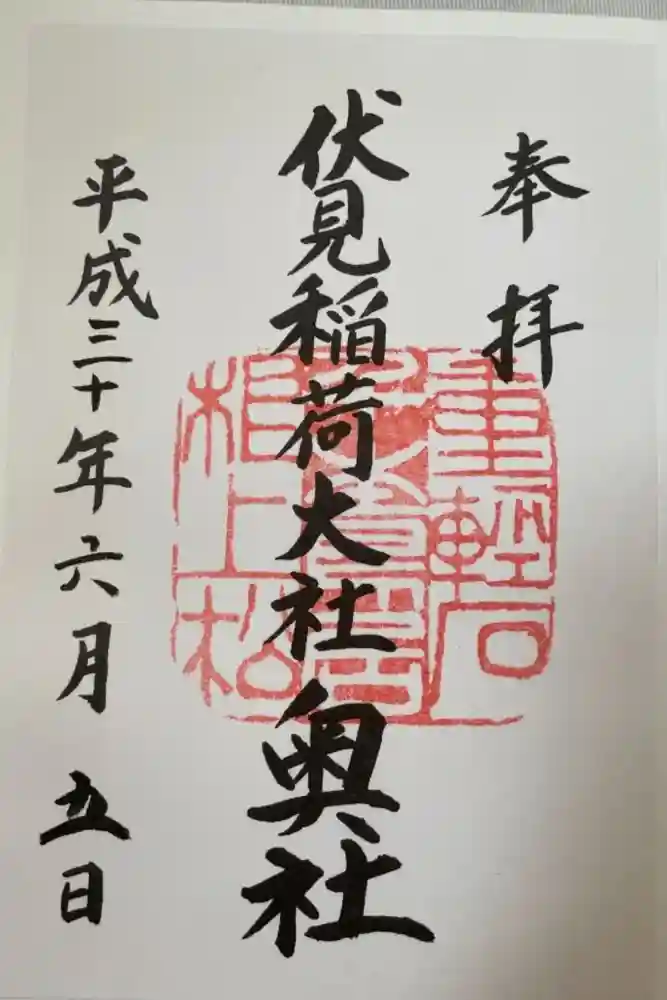 奉拝
伏見稲荷大社奥社
平成三十年六月五日